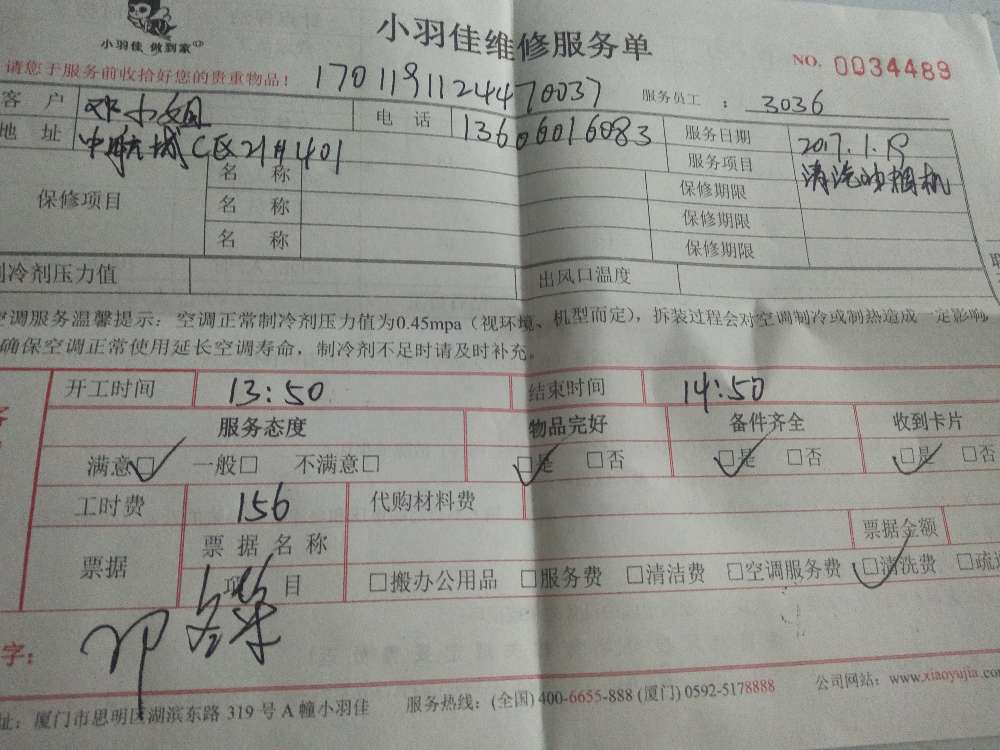 小羽佳 做到家
小羽佳维修服务单
NO. 0034489
请您于服务前收拾好您的贵重物品！ 17011911244470037 服务员工： 3036
客 户 邓小姐 电 话 13606016083 服务日期 2017.1.19
地 址 中航城C区21#401 服务项目 清洗油烟机
保修项目 名 称 保修期限
名 称 保修期限
名 称 保修期限
制冷剂压力值 出风口温度
空调服务温馨提示：空调正常制冷剂压力值为0.45mpa（视环境、机型而定），拆装过程会对空调制冷或制热造成一定影响，
确保空调正常使用延长空调寿命，制冷剂不足时请及时补充。
开工时间 13:50 结束时间 14:50
服务态度 物品完好 备件齐全 收到卡片
满意□ 一般□ 不满意□ □是 □否 □是 □否 □是 □否
工时费 156 代购材料费
票据 票据名称 票据金额
项 目 □搬办公用品 □服务费 □清洁费 □空调服务费 □清洗费 □疏
字： 邓
址：厦门市思明区湖滨东路 319 号 A 幢小羽佳 服务热线：(全国) 400-6655-888 (厦门) 0592-5178888 公司网站：www.xiaoyujia.com